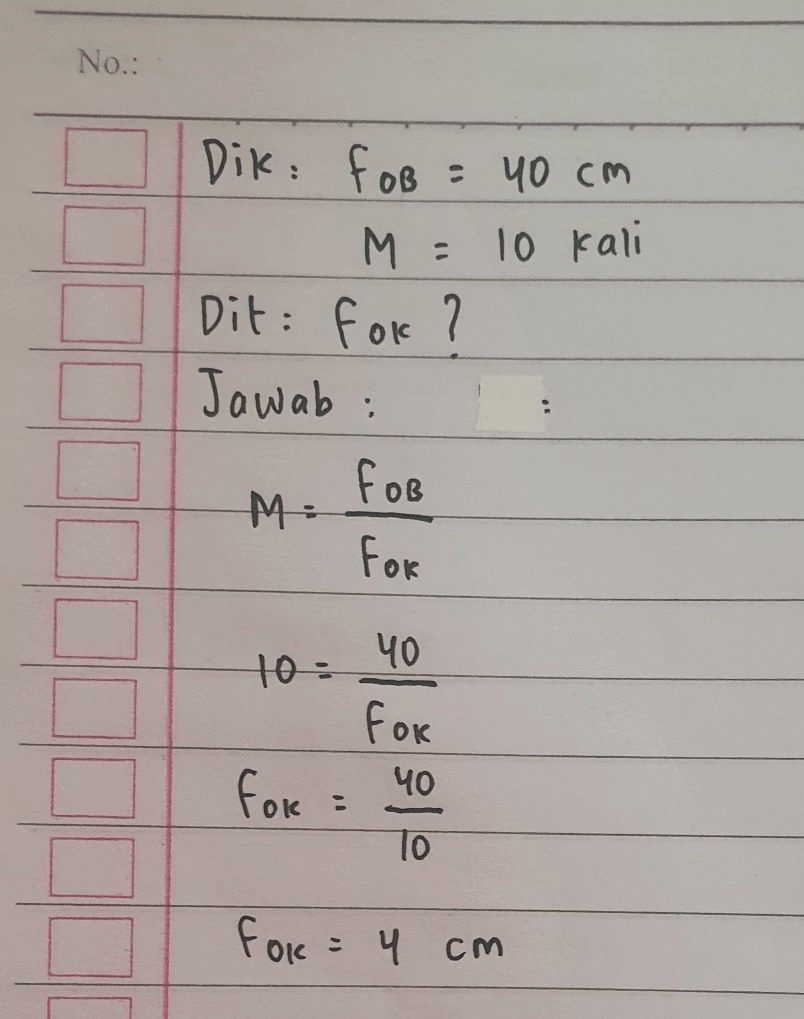 No.:
Dik : fOB = 40 cm
M = 10 kali
Dit : fOK ?
Jawab : :
M = fOB / fOK
10 = 40 / fOK
fOK = 40 / 10
fOK = 4 cm